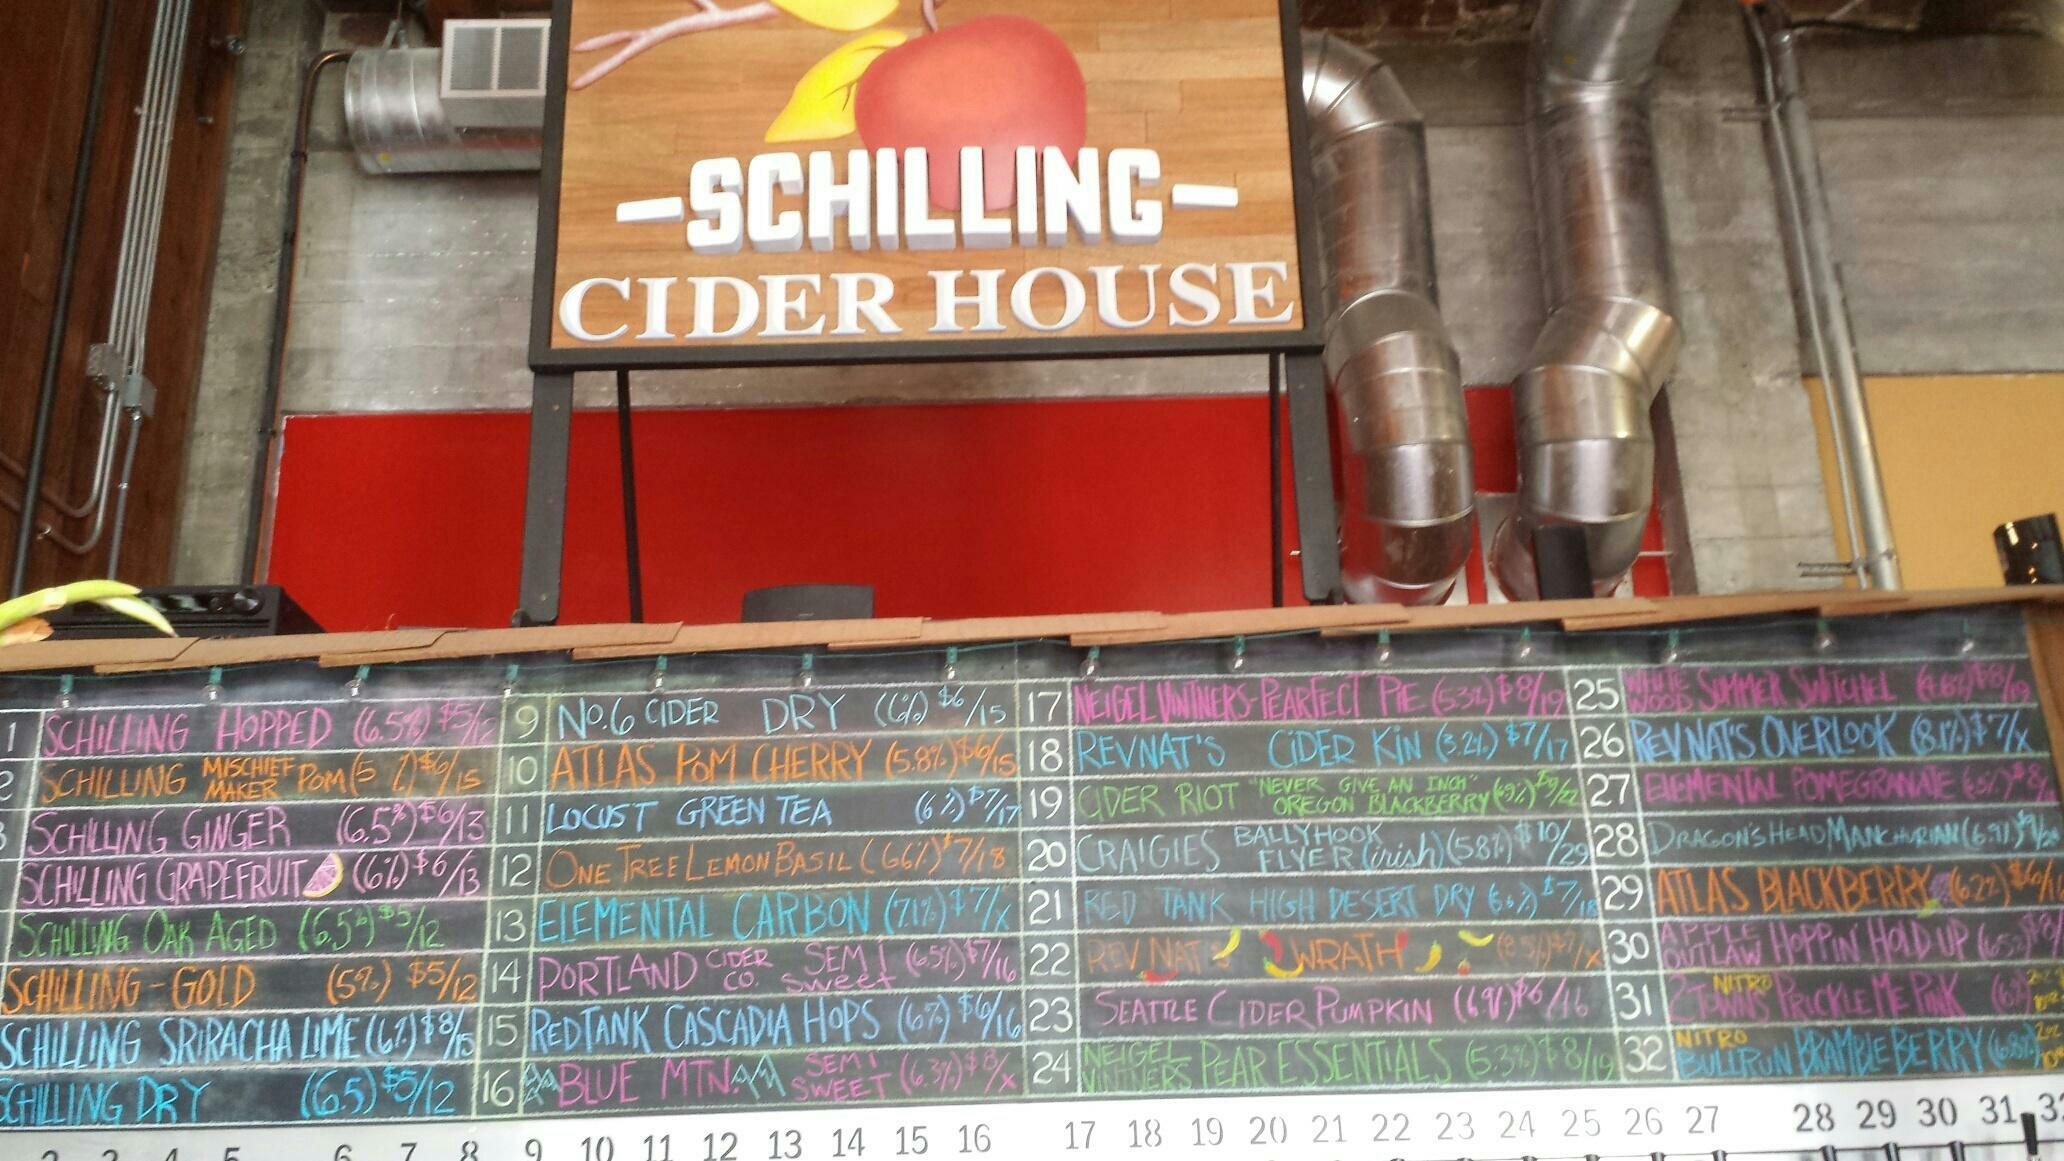 -SCHILLING-
CIDER HOUSE
1 SCHILLING HOPPED (6.5%) $5/12
2 SCHILLING MISCHIEF MAKER POM (5 %) $6/15
SCHILLING GINGER (6.5%) $6/13
SCHILLING GRAPEFRUIT (6%) $6/13
SCHILLING OAK AGED (6.5%) $5/12
SCHILLING - GOLD (5%) $5/12
SCHILLING SRIRACHA LIME (6%) $8/15
SCHILLING DRY (6.5) $5/12
9 No.6 CIDER DRY (6%) $6/15
10 ATLAS POM CHERRY (5.8%) $6/15
11 LOCUST GREEN TEA (6%) $7/17
12 ONE TREE LEMON BASIL (6.6%) $7/18
13 ELEMENTAL CARBON (7.1%) $7/X
14 PORTLAND CIDER CO. SEMI SWEET (6.5%) $7/16
15 REDTANK CASCADIA HOPS (6%) $6/16
16 BLUE MTN. SEMI SWEET (6.3%) $8/X
17 NEIGEL VINTNERS-PEARFECT PIE (5.3%) $8/19
18 REVNAT'S CIDER KIN (3.2%) $7/17
19 CIDER RIOT "NEVER GIVE AN INCH" OREGON BLACKBERRY (6.9%) $9/22
20 CRAIGIES BALLYHOOK FLYER (irish) (5.8%) $10/29
21 RED TANK HIGH DESERT DRY $7/18
22 REV NAT'S WRATH (8.5%) $7/X
23 SEATTLE CIDER PUMPKIN (6.9%) $6/16
24 NEIGEL VINTNERS PEAR ESSENTIALS (5.3%) $8/19
25 WHITE WOOD SUMMER SWITCHEL $8/19
26 REV NAT'S OVERLOOK (8.1%) $7/X
27 ELEMENTAL POMEGRANATE (6.5%)
28 DRAGON'S HEAD MANCHURIAN (6.9%)
29 ATLAS BLACKBERRY (6.2%)
30 APPLE OUTLAW HOPPIN' HOLD UP (6.5%)
31 2 TOWNS NITRO PRICKLE ME PINK
32 NITRO BULLRUN BRAMBLE BERRY (6.8%)
2 3 4 5 6 7 8 9 10 11 12 13 14 15 16 17 18 19 20 21 22 23 24 25 26 27 28 29 30 31 32